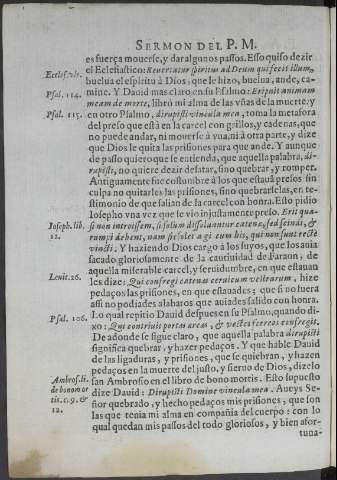 SERMON DEL P. M.
es fuerça mouerse, y dar algunos passos. Esso quiso dezir
Eccles. vlt.
el Eclesiastico: Reuertatur spiritus ad Deum qui fecit illum,
buelua el espiritu à Dios, que le hizo, buelua, ande, ca-
Psal. 114.
mine. Y Dauid mas claro en su Psalmo: Eripuit animam
meam de morte, librò mi alma de las vñas de la muerte: y
Psal. 115.
en otro Psalmo, dirupisti vincula mea, toma la metafora
del preso que està en la carcel con grillos, y cadenas, que
no puede andar, ni mouerse à vna, ni à otra parte, y dize
que Dios le quita las prisiones para que ande. Y aunque
de passo quiero que se entienda, que aquella palabra, di-
rupisti, no quiere dezir desatar, sino quebrar, y romper.
Antiguamente fue costumbre à los que estauã presos sin
culpa no quitarles las prisiones, sino quebrarselas, en te-
stimonio de que salian de la carcel con honra. Esto pidio
Iosepho vna vez que se vio injustamente preso. Erit qua-
Ioseph. lib.
si non introissem, si solum dissoluantur catenæ, sed scindi, &
12.
rumpi debent, nam sic solet agi cum his, qui non sunt recte
vincti. Y haziendo Dios cargo à los suyos, que los auia
sacado gloriosamente de la cautiuidad de Faraon, de
aquella miserable carcel, y seruidumbre, en que estauan
Leuit. 26.
les dize: Qui confregi catenas ceruicum vestrarum, hize
pedaços las prisiones, en que estauades: que si no fuera
assi no podiades alabaros que auiades salido con honra.
Psal. 106.
Lo qual repitio Dauid despues en su Psalmo, quando di-
xo: Qui contriuit portas æreas, & vectes ferreos confregit.
De adonde se sigue claro, que aquella palabra dirupisti
significa quebrar, y hazer pedaços. Y que hable Dauid
de las ligaduras, y prisiones, que se quiebran, y hazen
pedaços en la muerte del justo, y sieruo de Dios, dizelo
Ambros. li.
san Ambrosio en el libro de bono mortis. Esto supuesto
de bono mor
dize Dauid: Dirupisti Domine vincula mea. Aueys Se-
tis. c. 9. &
ñor quebrado, y hecho pedaços mis prisiones, que son
12.
las que tenia mi alma en compañia del cuerpo: con lo
qual quedan mis passos del todo gloriosos, y bien afor-
tuna-